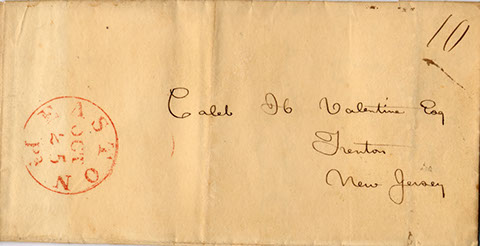 10
Caleb H Valentine Esq
Trenton
New Jersey
EASTON Pa
OCT
25